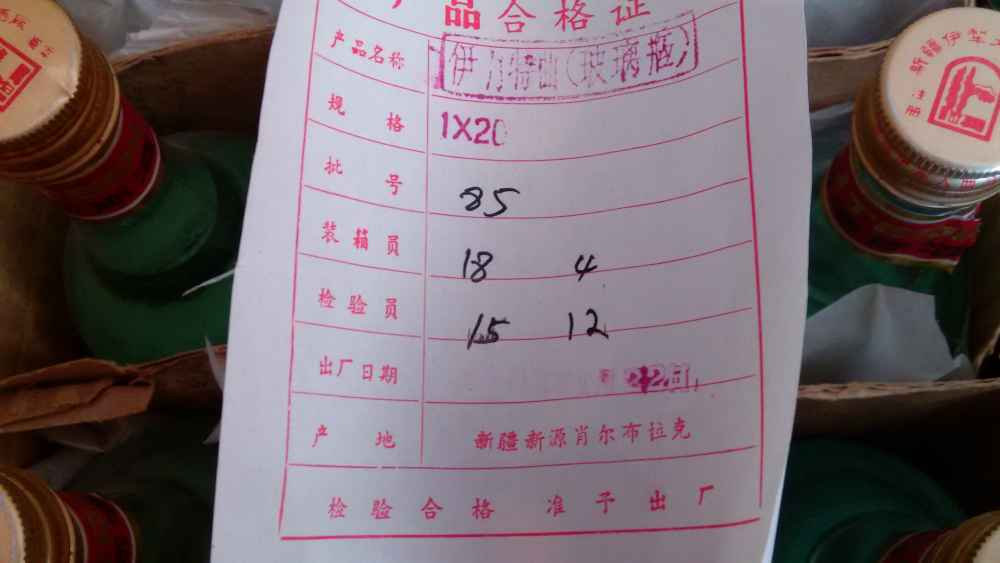 产品合格证
产品名称 伊力特曲(玻璃瓶)
规格 1X20
批号 85
装箱员 18 4
检验员 15 12
出厂日期
产地 新疆新源肖尔布拉克
检验合格 准予出厂
新疆伊犁